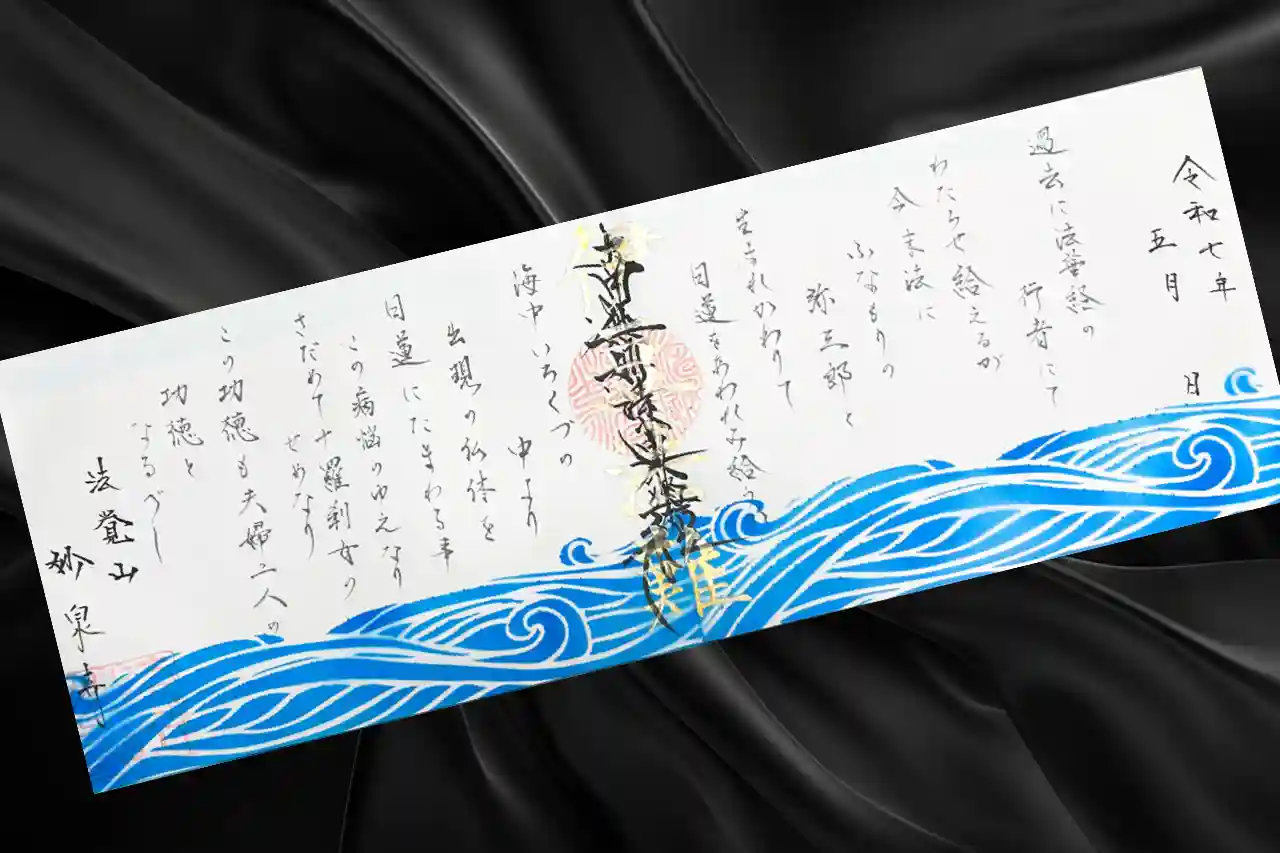 令和七年
五月 日
過去に法華経の
行者にて
わたらせ給えるが
今末法に
ふなもりの
弥三郎と
生まれかわりて
日蓮をあわれみ給う
南無妙法蓮華経
海中いろくづの
中より
出現の仏体を
日蓮にたまわる事
この病悩のゆえなり
さだめて十羅刹女の
せめなり
この功徳も夫婦二人の
功徳と
なるべし
法覚山
妙泉寺